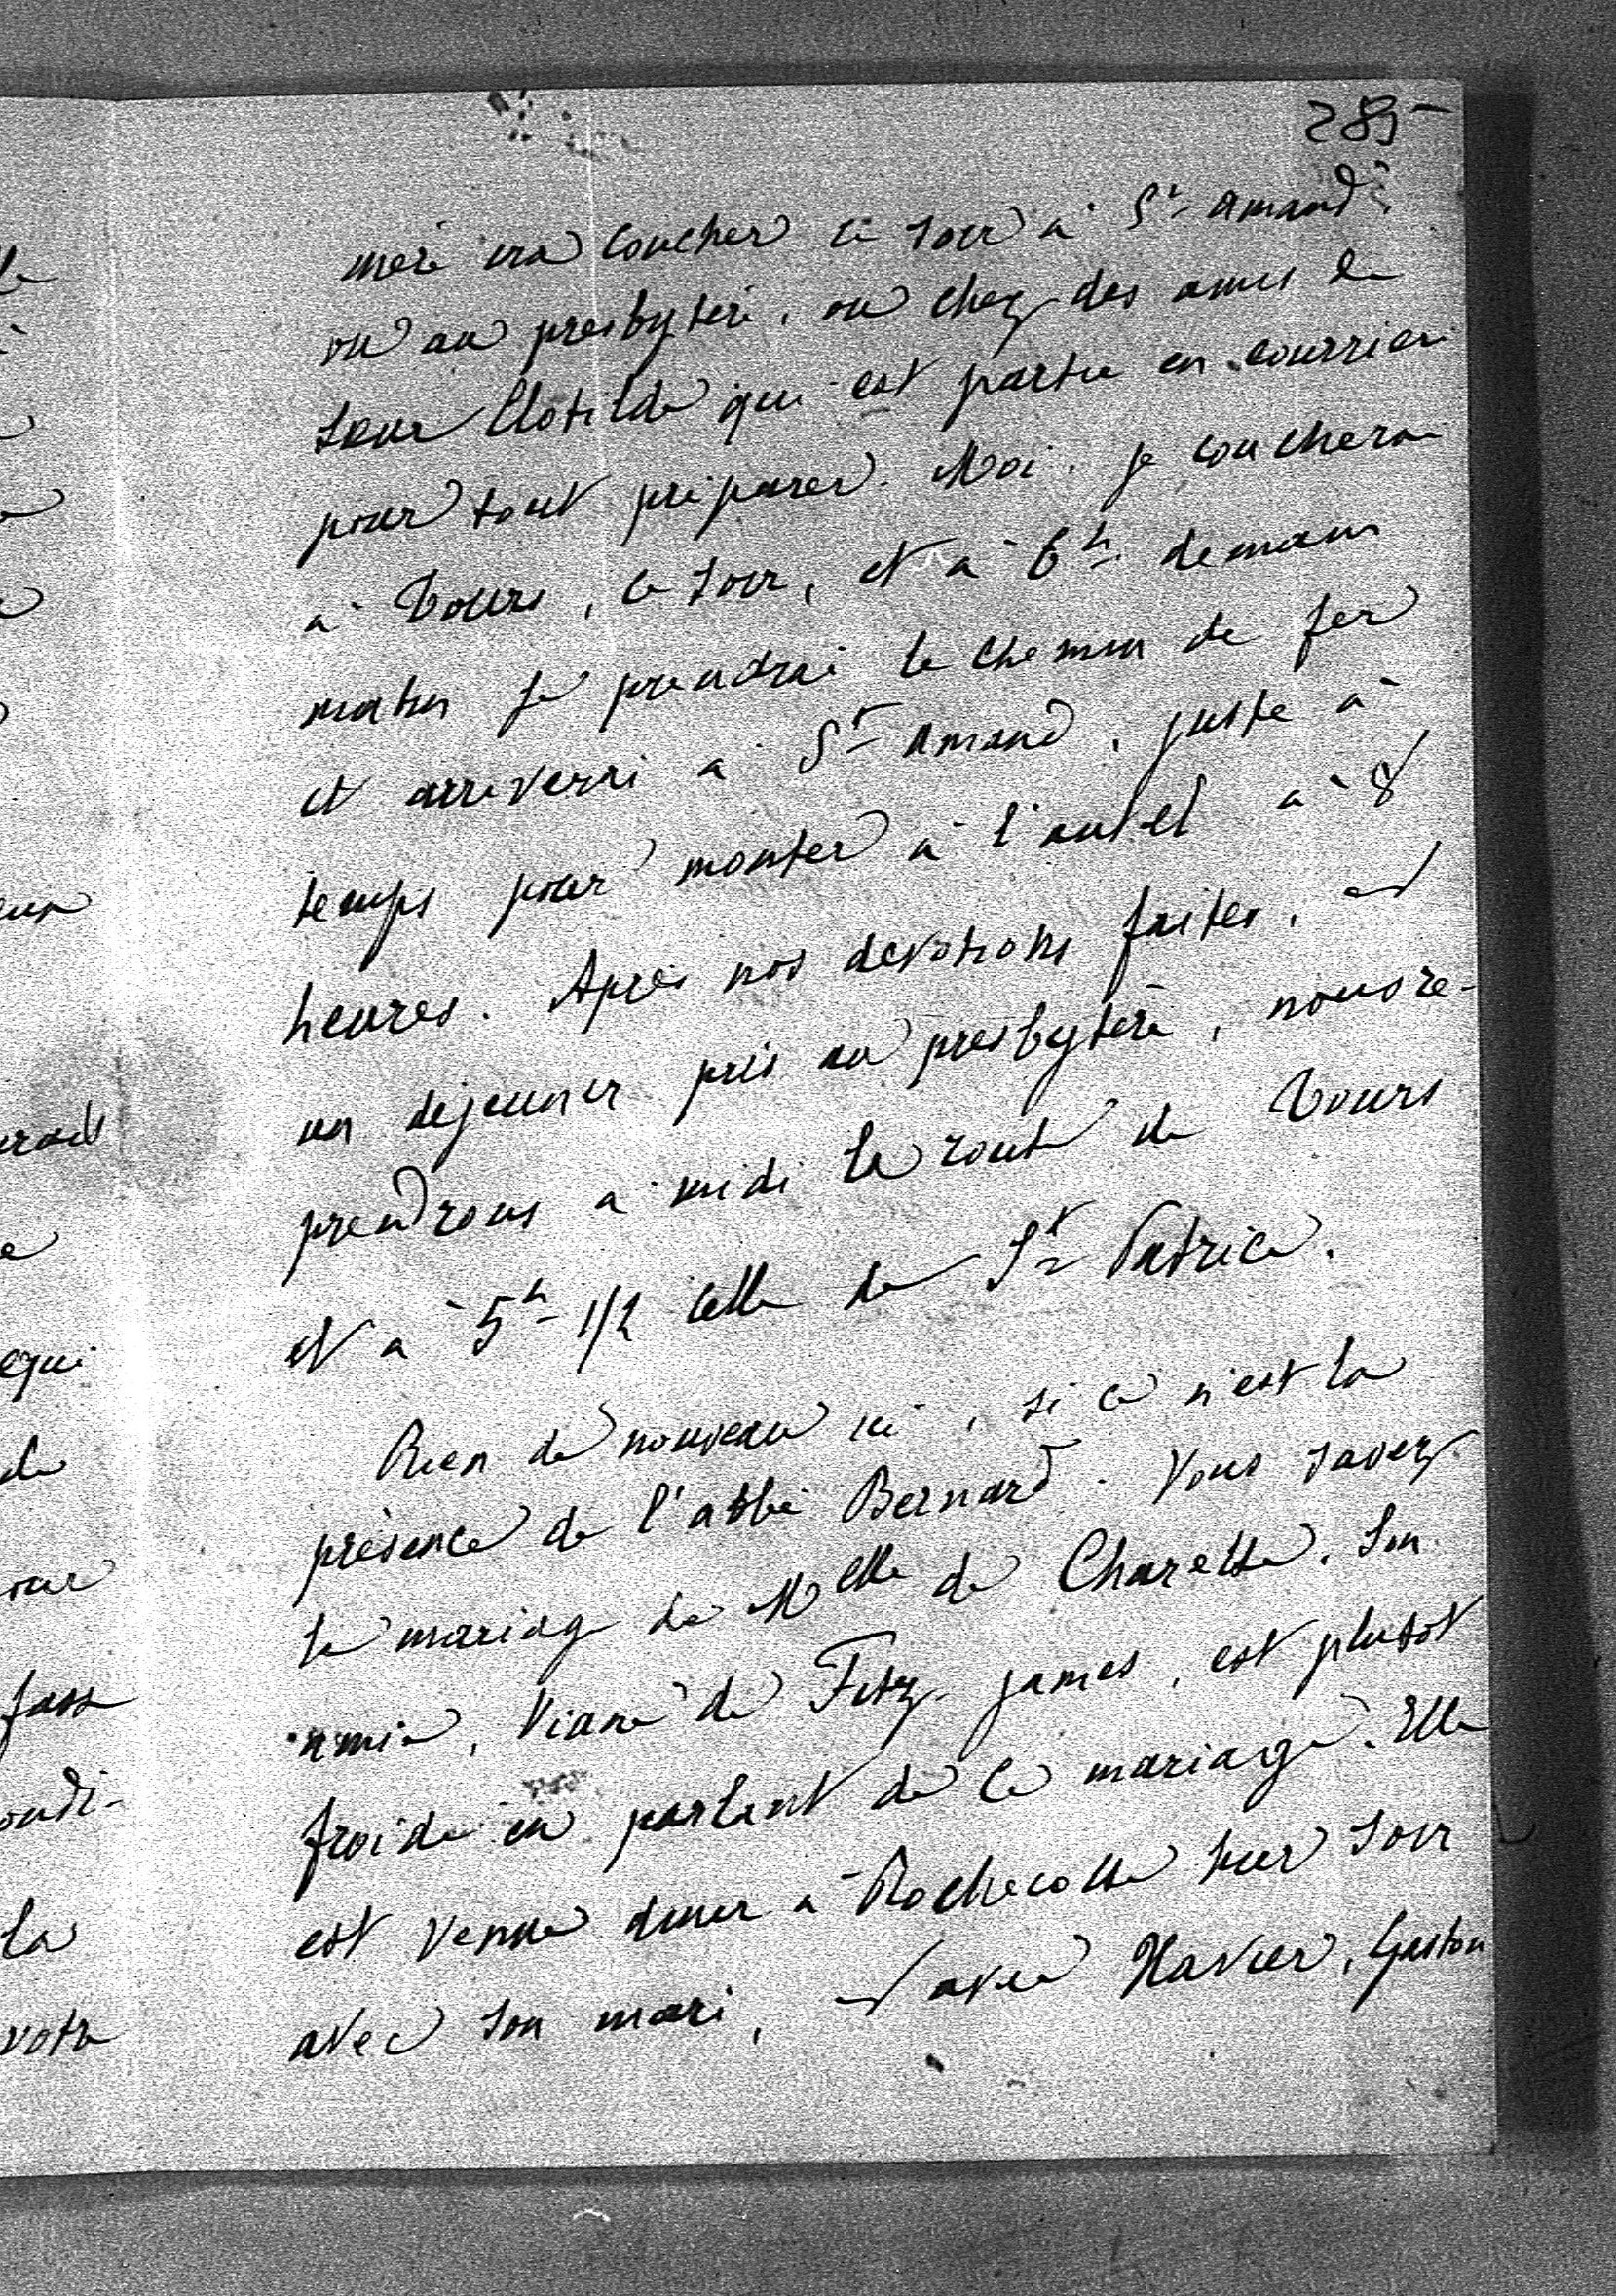 285
mère ira coucher ce soir à St Amand,
ou au presbytère, ou chez des amis de
sœur Clotilde qui est partie en courrier
pour tout préparer. Moi, je coucherai
à Tours, ce soir, et à 6h demain
matin je prendrai le chemin de fer
et arriverai à St Amand, juste à
temps pour monter à l'autel à 8
heures. Après nos dévotions faites, et
un déjeuner pris au presbytère, nous re-
prendrons à midi la route de Tours
et à 5h 1/2 celle de St Patrice.
Rien de nouveau ici, si ce n'est la
présence de l'abbé Bernard. Vous savez
le mariage de Melle de Charette. Son
amie, de Fitz-james, est plutôt
froide en parlant de ce mariage. Elle
est venue diner à Rochecotte hier soir
avec son mari, et avec Xavier, Gaston